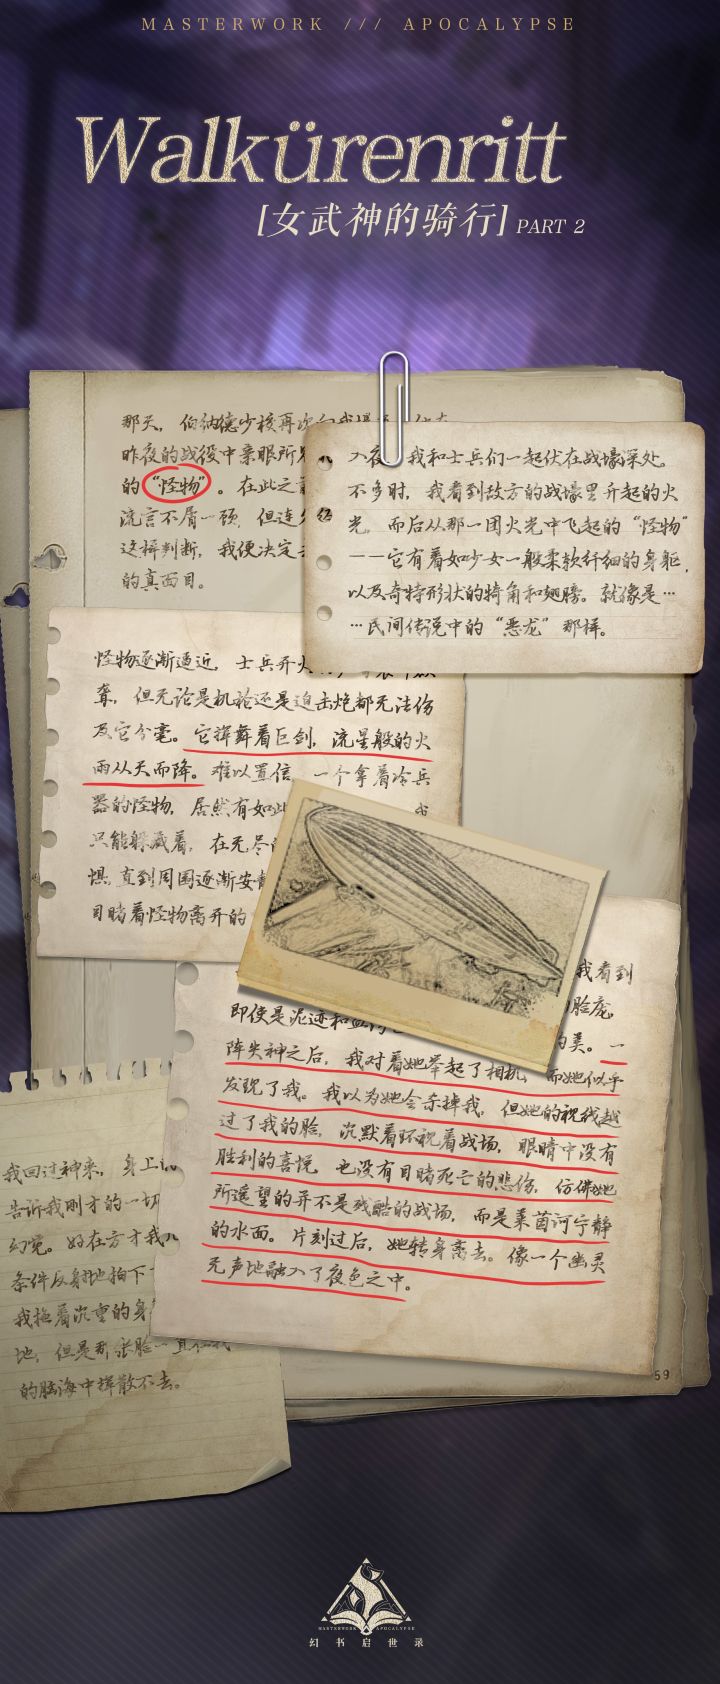 MASTERWORK /// APOCALYPSE
Walkürenritt
[女武神的骑行] PART 2
那天，伯纳德少校再次向我
昨夜的战役中亲眼所
的“怪物”。在此之
流言不屑一顾，但连
这样判断，我便决定
的真面目。
入夜，我和士兵们一起伏在战壕深处。
不多时，我看到敌方的战壕里升起的火
光，而后从那一团火光中飞起的“怪物”
——它有着如少女一般柔软纤细的身躯，
以及奇特形状的犄角和翅膀。就像是…
…民间传说中的“恶龙”那样。
怪物逐渐逼近，士兵开火
聋，但无论是机枪还是迫击炮都无法伤
及它分毫。它挥舞着巨剑，流星般的火
雨从天而降。难以置信，一个拿着冷兵
器的怪物，居然有如此
我
只能躲藏着，在无尽
惧，直到周围逐渐安静
目睹着怪物离开的
我看到
脸庞，
即使是泥迹和血
的美。一
阵失神之后，我对着她举起了相机，而她似乎
发现了我。我以为她会杀掉我，但她的视线越
过了我的脸，沉默着环视着战场，眼睛中没有
胜利的喜悦，也没有目睹死亡的悲伤，仿佛她
所遥望的并不是残酷的战场，而是莱茵河宁静
的水面。片刻过后，她转身离去。像一个幽灵
无声地融入了夜色之中。
我回过神来，身上
告诉我刚才的一切
幻觉。好在方才我
条件反射地拍下
我拖着沉重的身
地，但是那张脸一直在我
的脑海中挥散不去。
59
MASTERWORK APOCALYPSE
幻书启世录